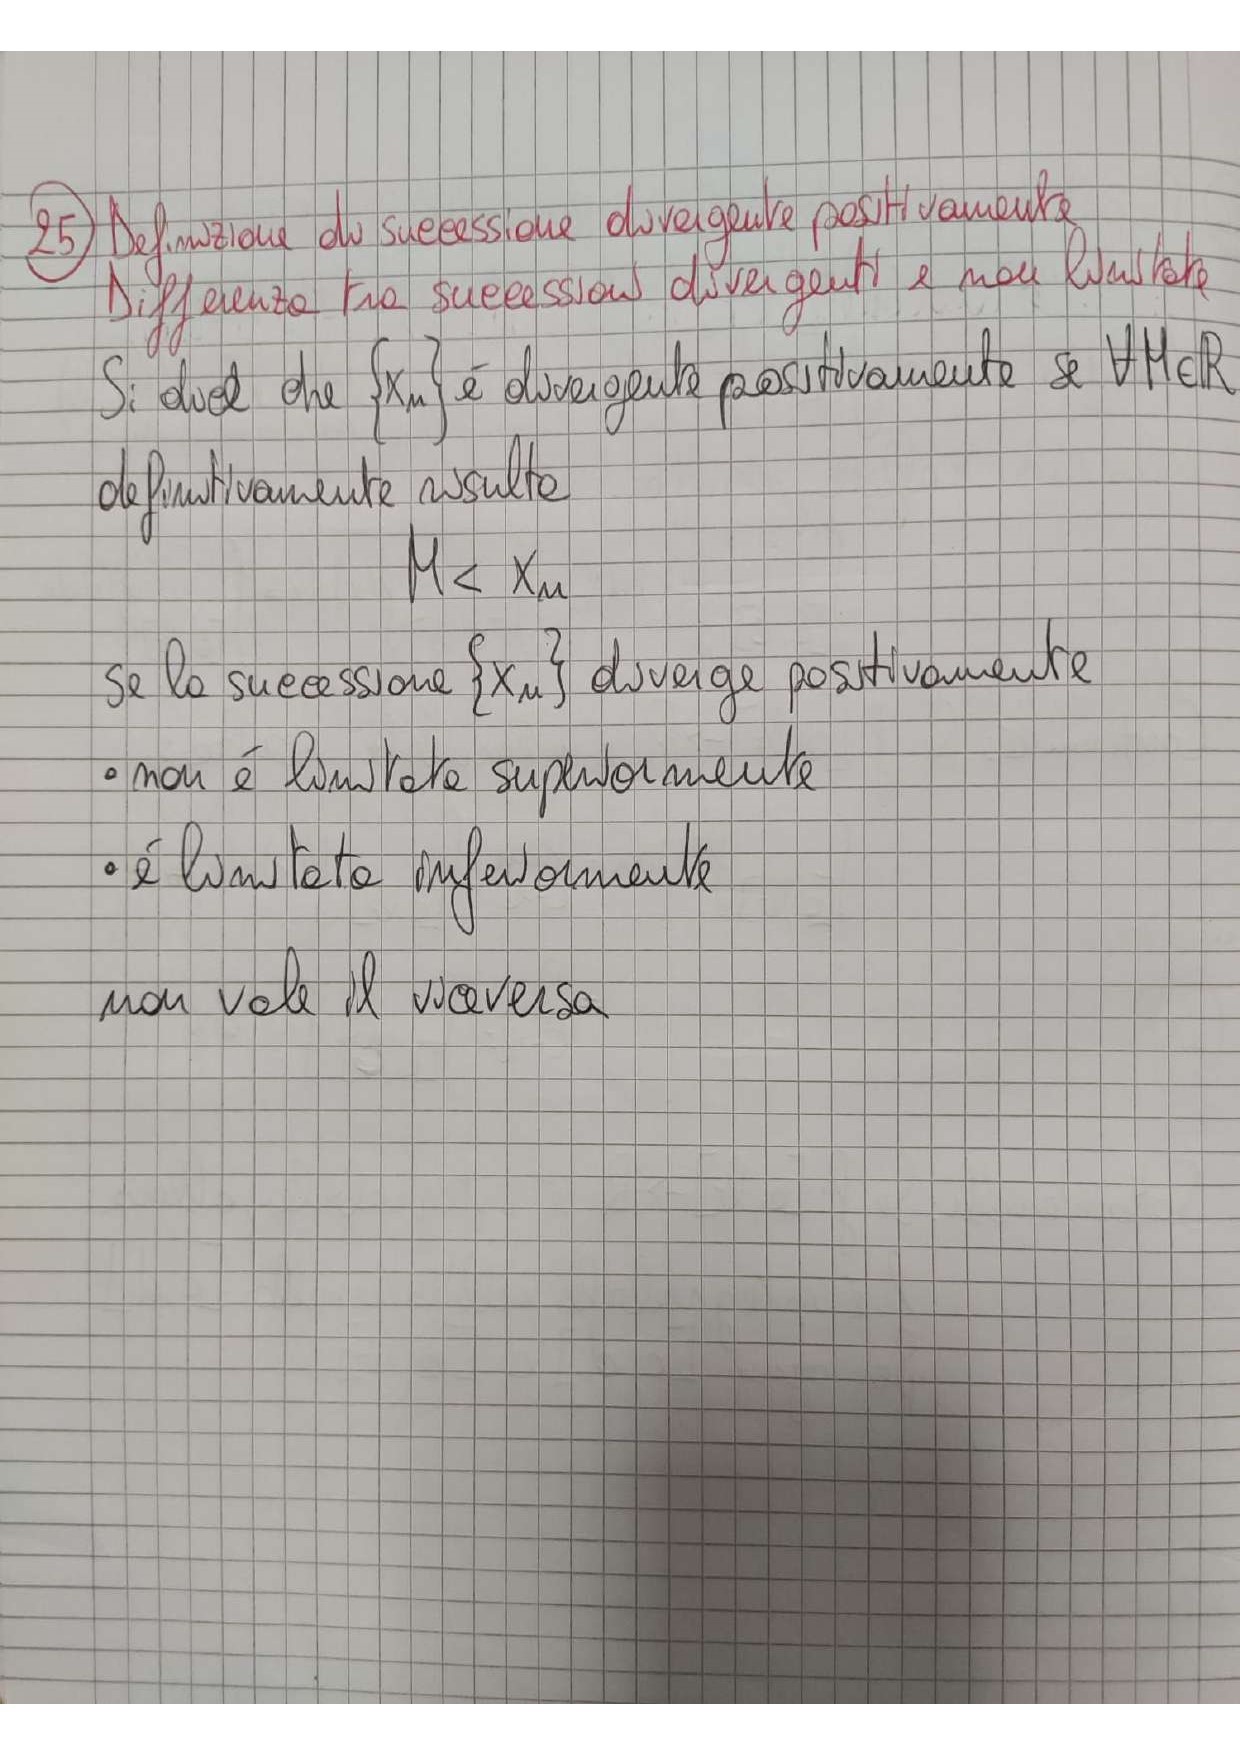 25) Definizione di successione divergente positivamente
Differenza tra successioni divergenti e non limitate
Si dice che {xn} é divergente positivamente se ∀M∈R
definitivamente risulta
M < xn
se la successione {xn} diverge positivamente
• non é limitata superiormente
• é limitata inferiormente
non vale il viceversa